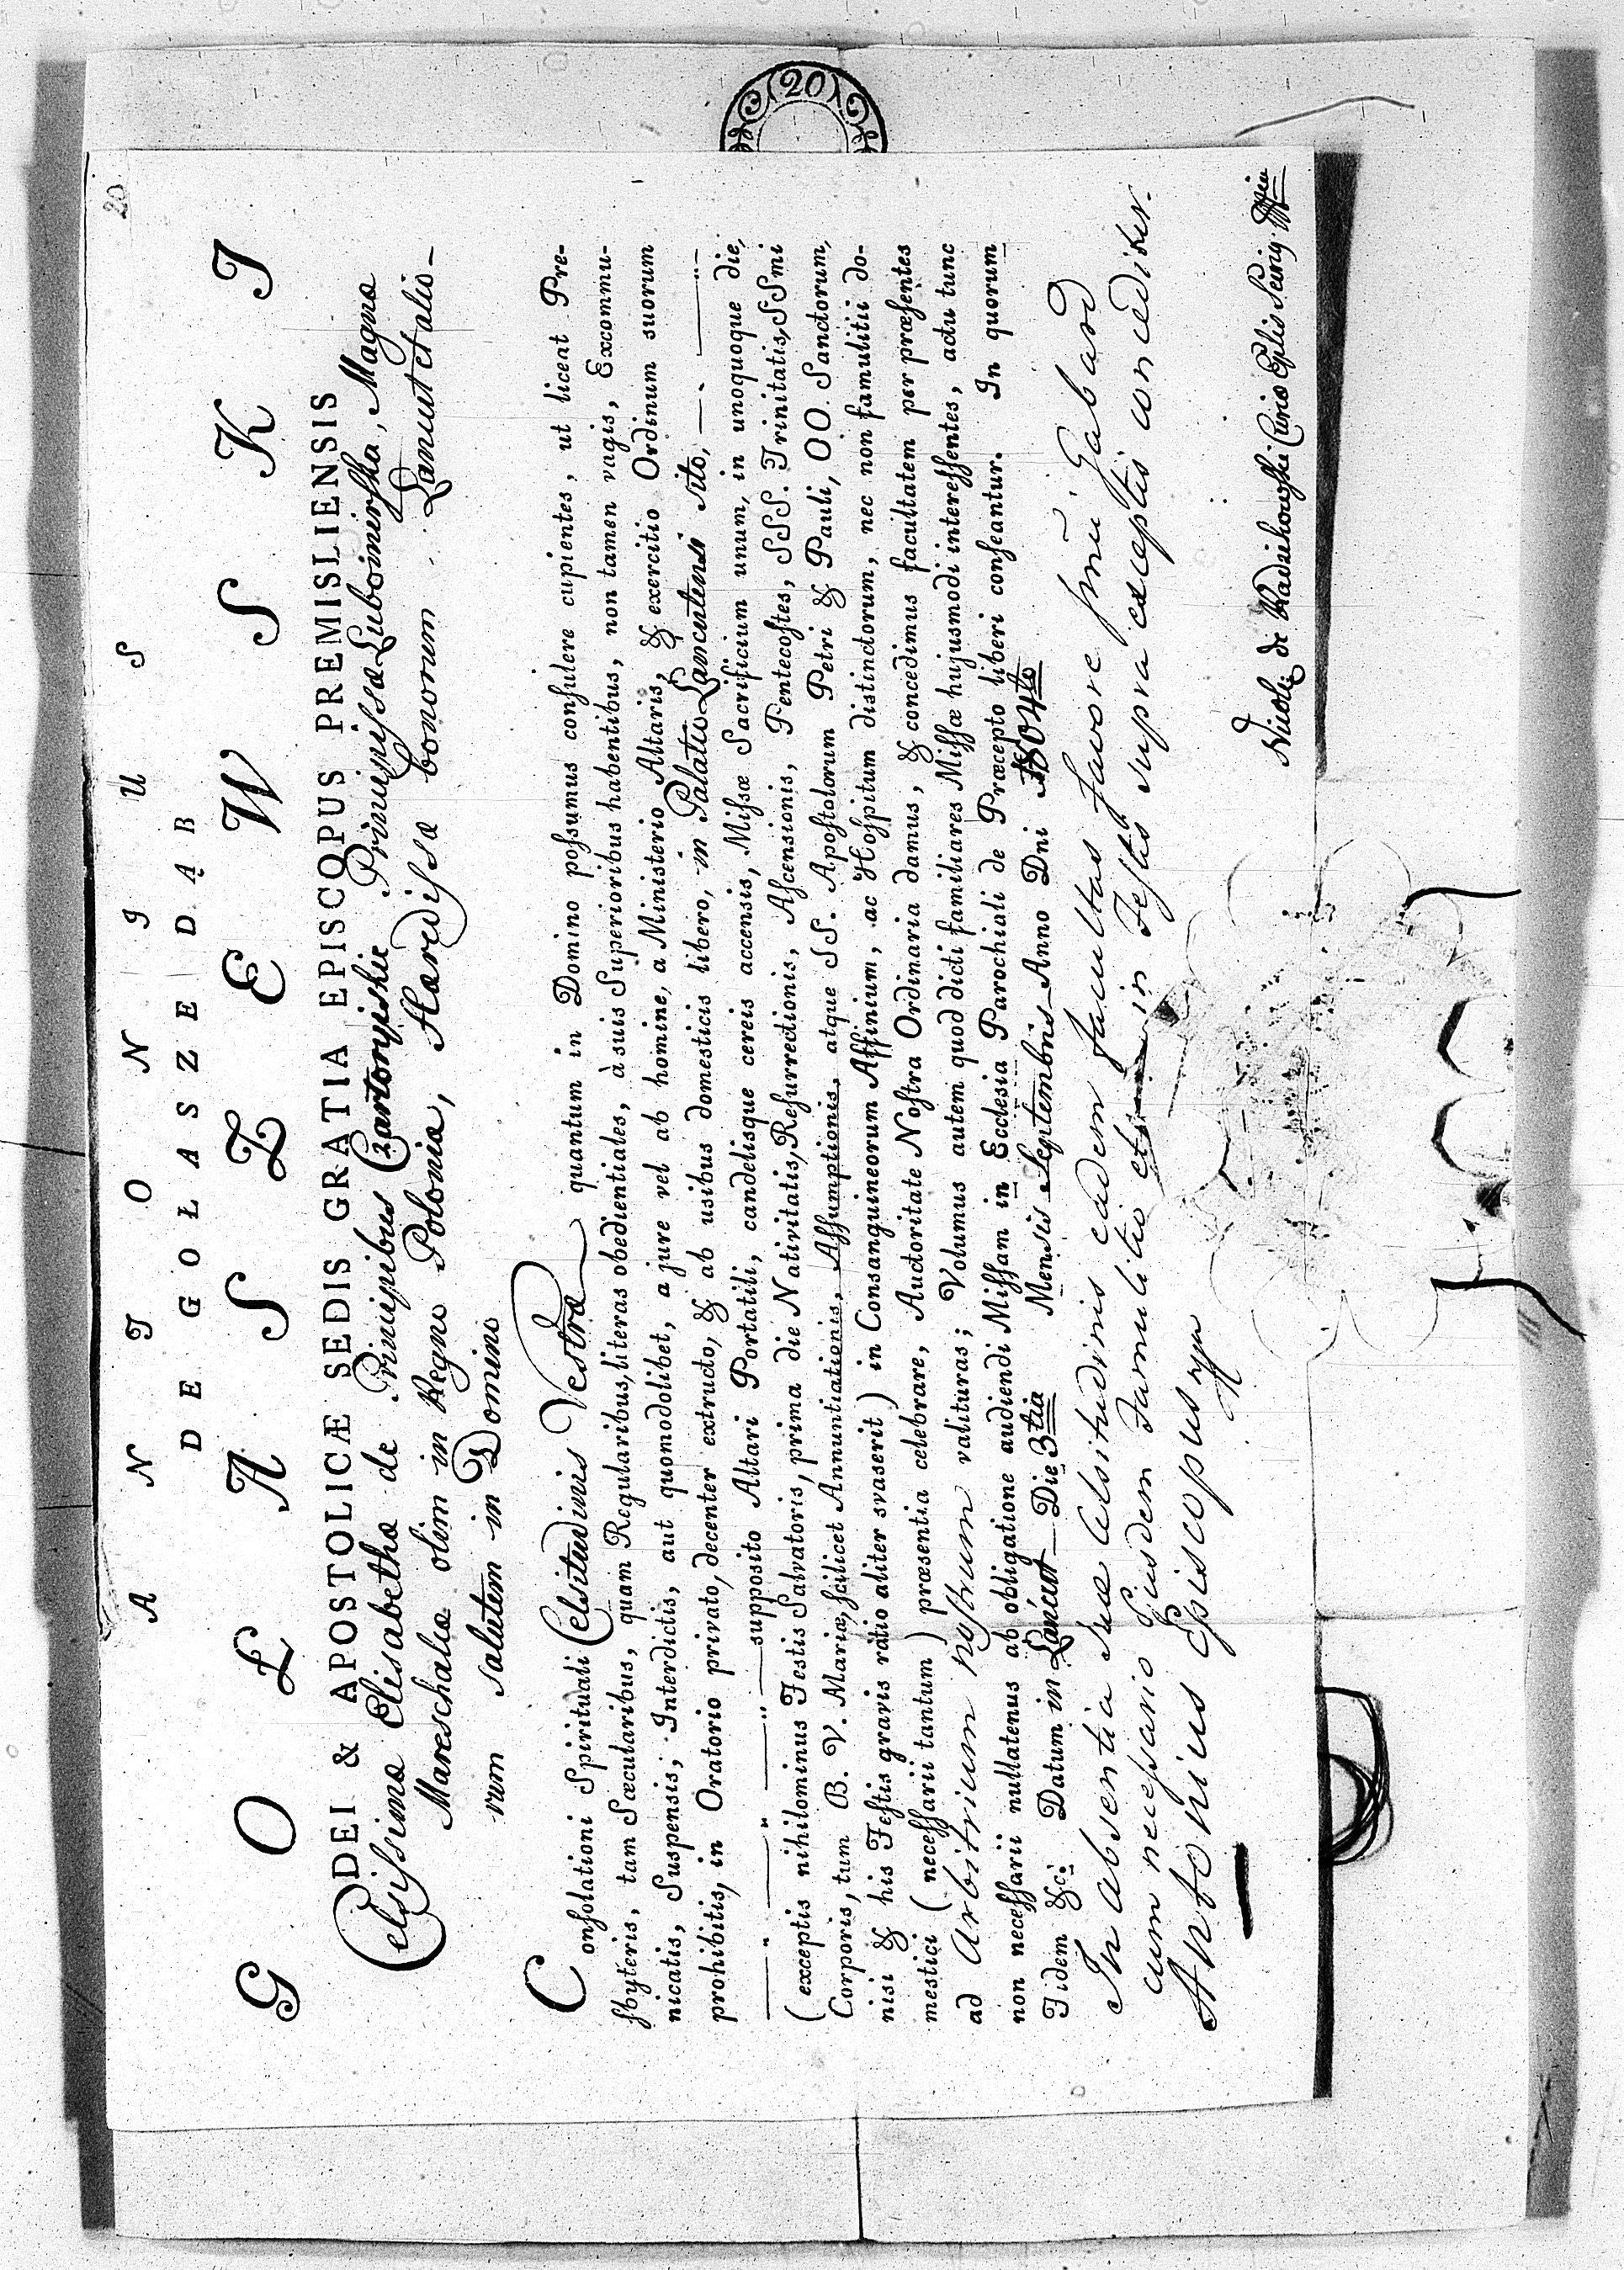 20
(20)
A N T O N I U S
D E G O Ł A S Z E D Ą B
G O Ł A S Z E W S K I
DEI & APOSTOLICÆ SEDIS GRATIA EPISCOPUS PREMISLIENSIS
Celsissimæ Elisabethæ de Principibus Czartoryiskie Principissæ Lubomirska, Magnæ
Mareschalcæ olim in Regno Poloniæ, Hæredissæ bonorum Lancut et alio-
rum salutem in Domino
Consolationi Spirituali Celsitudinis Vestræ quantum in Domino possumus consulere cupientes, ut liceat Pre-
sbyteris, tam Sæcularibus, quam Regularibus, literas obedientiales, à suis Superioribus habentibus, non tamen vagis, Excommu-
nicatis, Suspensis, Interdictis, aut quomodolibet, a jure vel ab homine, a Ministerio Altaris, & exercitio Ordinum suorum
prohibitis, in Oratorio privato, decenter extructo, & ab usibus domesticis libero, in Palatio Lancutensi sito,
supposito Altari Portatili, candelisque cereis accensis, Missæ Sacrificium unum, in unoquoque die,
(exceptis nihilominus Festis Salvatoris, prima die Nativitatis, Resurrectionis, Ascensionis, Pentecostes, SSS. Trinitatis, SSmi
Corporis, tum B. V. Mariæ, scilicet Annuntiationis, Assumptionis, atque SS. Apostolorum Petri & Pauli, OO. Sanctorum,
nisi & his Festis gravis ratio aliter svaserit) in Consanguineorum Affinium, ac Hospitum distinctorum, nec non famulitii do-
mestici (necessarii tantum) præsentia celebrare, Auctoritate Nostra Ordinaria damus, & concedimus facultatem per præsentes
ad Arbitrium nostrum valituras; Volumus autem quod dicti familiares Missæ hujusmodi interessentes, actu tunc
non necessarii nullatenus ab obligatione audiendi Missam in Ecclesia Parochiali de Præcepto liberi censeantur. In quorum
Fidem &c. Datum in Lancut Die 3tia Mensis Septembris Anno Dni 1804to
In absentia suæ Celsitudinis eadem facultas favore Gabard
cum necessario Ejusdem Famulitio et in Festis supra exceptis conceditur.
Antonius Episcopus mpr
Nicol: de Radzikowski Curiæ Eplis